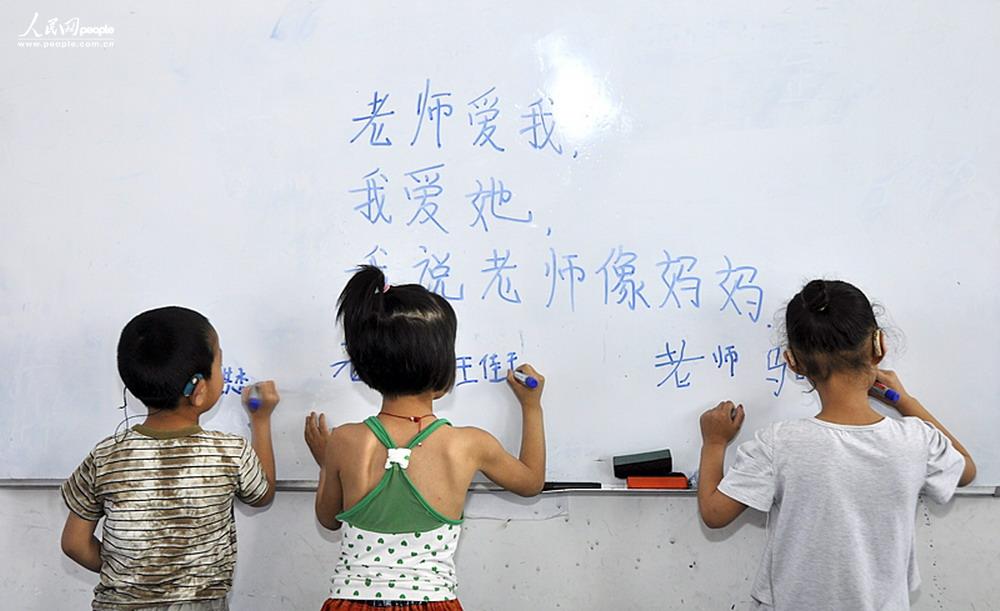 人民网 people
www.people.com.cn
老师爱我,
我爱她,
我说老师像妈妈.
老师
王佳